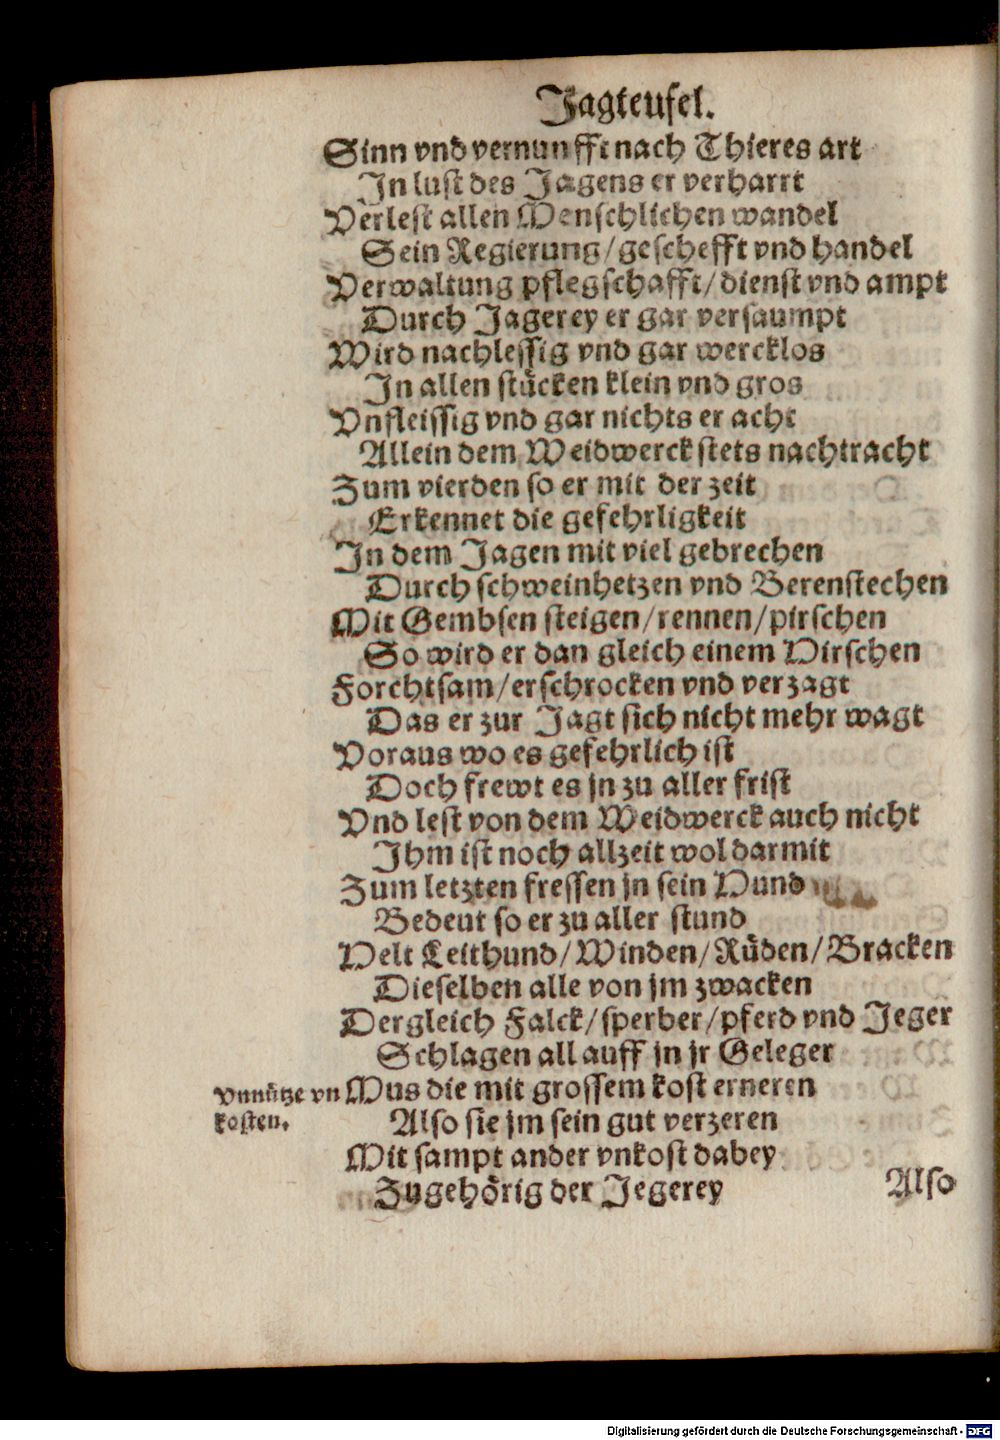 Jagteufel.
Sinn vnd vernunfft nach Thieres art
In lust des Jagens er verharrt
Verlest allen Menschlichen wandel
Sein Regierung/geschefft vnd handel
Verwaltung pflegschafft/dienst vnd ampt
Durch Jagerey er gar versaumpt
Wird nachlessig vnd gar wercklos
In allen stücken klein vnd gros
Vnfleissig vnd gar nichts er acht
Allein dem Weidwerck stets nachtracht
Zum vierden so er mit der zeit
Erkennet die gefehrligkeit
In dem Jagen mit viel gebrechen
Durch schweinhetzen vnd Berenstechen
Mit Gembsen steigen/rennen/pirschen
So wird er dan gleich einem Hirschen
Forchtsam/erschrocken vnd verzagt
Das er zur Jagt sich nicht mehr wagt
Voraus wo es gefehrlich ist
Doch frewt es jn zu aller frist
Vnd lest von dem Weidwerck auch nicht
Ihm ist noch allzeit wol darmit
Zum letzten fressen jn sein Hund
Bedeut so er zu aller stund
Helt Leithund/Winden/Rüden/Bracken
Dieselben alle von jm zwacken
Dergleich Falck/sperber/pferd vnd Jeger
Schlagen all auff jn jr Geleger
Vnnütze vn
kosten.
Mus die mit grossem kost erneren
Also sie jm sein gut verzeren
Mit sampt ander vnkost dabey
Zugehörig der Jegerey
Also
Digitalisierung gefördert durch die Deutsche Forschungsgemeinschaft - DFG